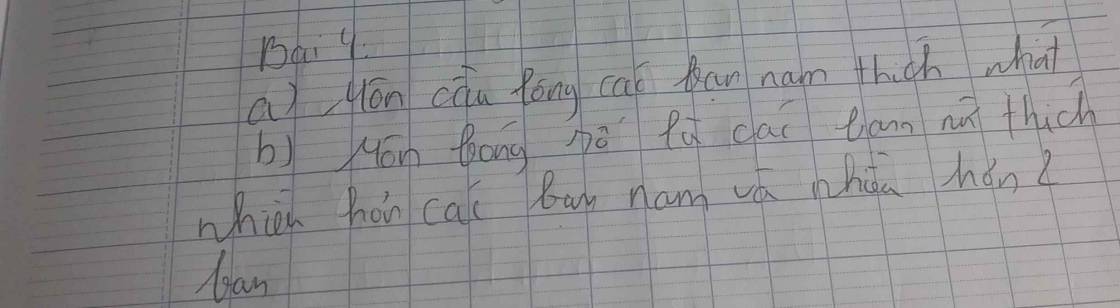 Bài 4:
a) Môn cầu lông các bạn nam thích nhất
b) Môn bóng rổ là các bạn nữ thích
nhiều hơn các bạn nam và nhiều hơn 2
bạn